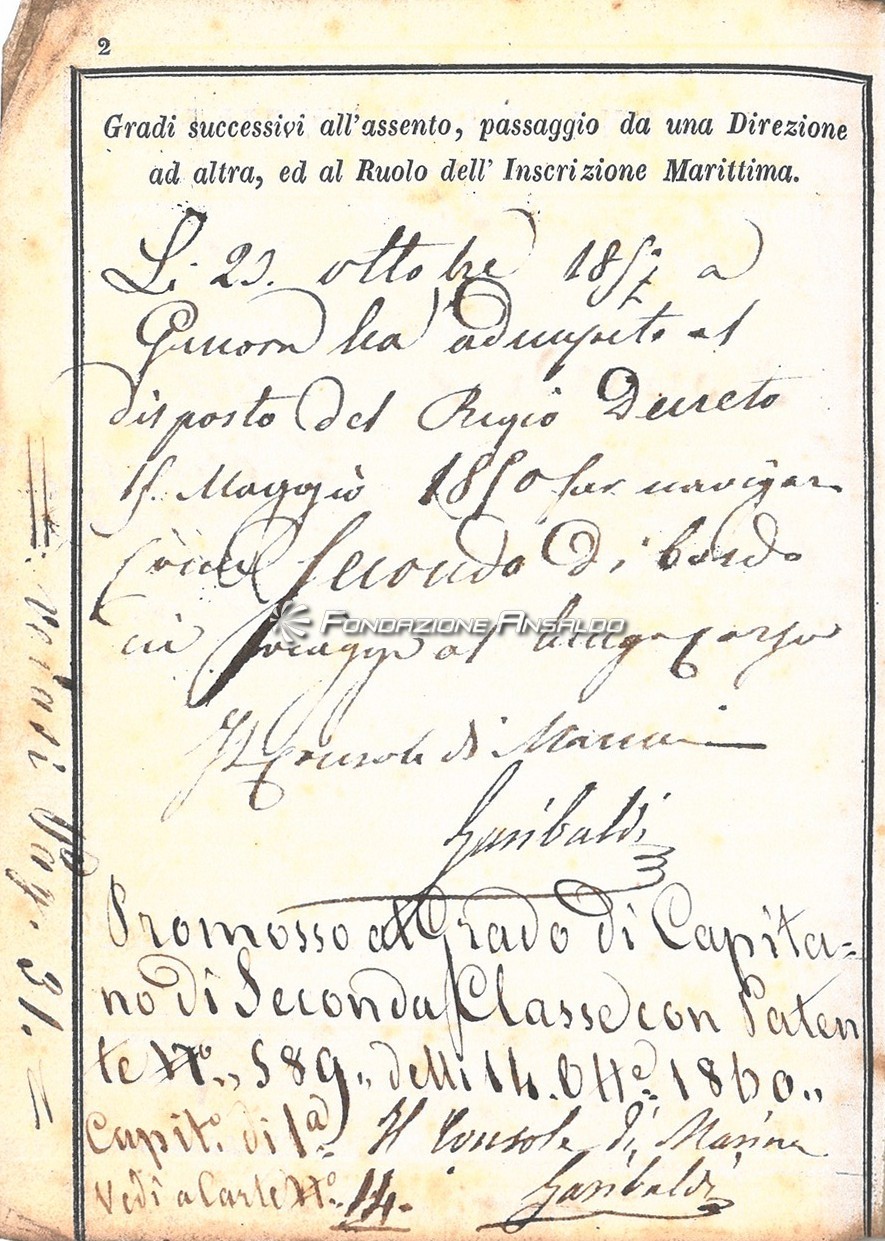 2
Gradi successivi all'assento, passaggio da una Direzione
ad altra, ed al Ruolo dell' Inscrizione Marittima.
Li 23. ottobre 1857 a
Genova ha adempito al
disposto del Regio Decreto
15. Maggio 1850 per navigar
come Secondo di bordo
in viaggi al lungo corso
FONDAZIONE ANSALDO
Il Console di Marina
Garibaldi
Promosso al Grado di Capita=
no di Seconda Classe con Paten
te N.º,, 589,, delli 14. Ott.e 1860.,,
Capit.º di 1.ª
Vedi a Carte N.º 14.
Il Console di Marina
Garibaldi
Vedasi Pag. 31.